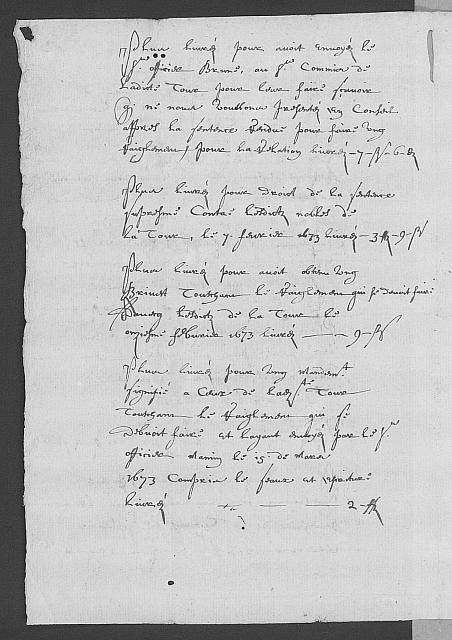 Plus livré pour avoir envoyé le
Sr officier Brune, au Sr Commis de
ladite Tour pour leur faire scavoir
qi ne nous voullons presenter en Conseil
appres la sentence rendue pour faire ung
Reiglement / pour la relation livré - 7 - ß - 6 - d
Plus livré pour droit de la sentence
supresme Contre lesdicts nobles de
la Tour, le 7. feurier 1673 livré - 3 ff - 9 - ß
Plus livré pour avoir obtenu ung
Touchant le Reiglement qui se devoit faire
lesdicts de la Tour le
onziesme febvrier 1673 livré - 9 - ß
Plus livré pour ung mandemt
signiffié a Ceux de ladte Tour
Touchant le Reiglement qui se
debvoit faire et layant envoyé par le Sr
officier le 15. de Mars
1673 Compris le seaux et escriture
livré 2 - ff